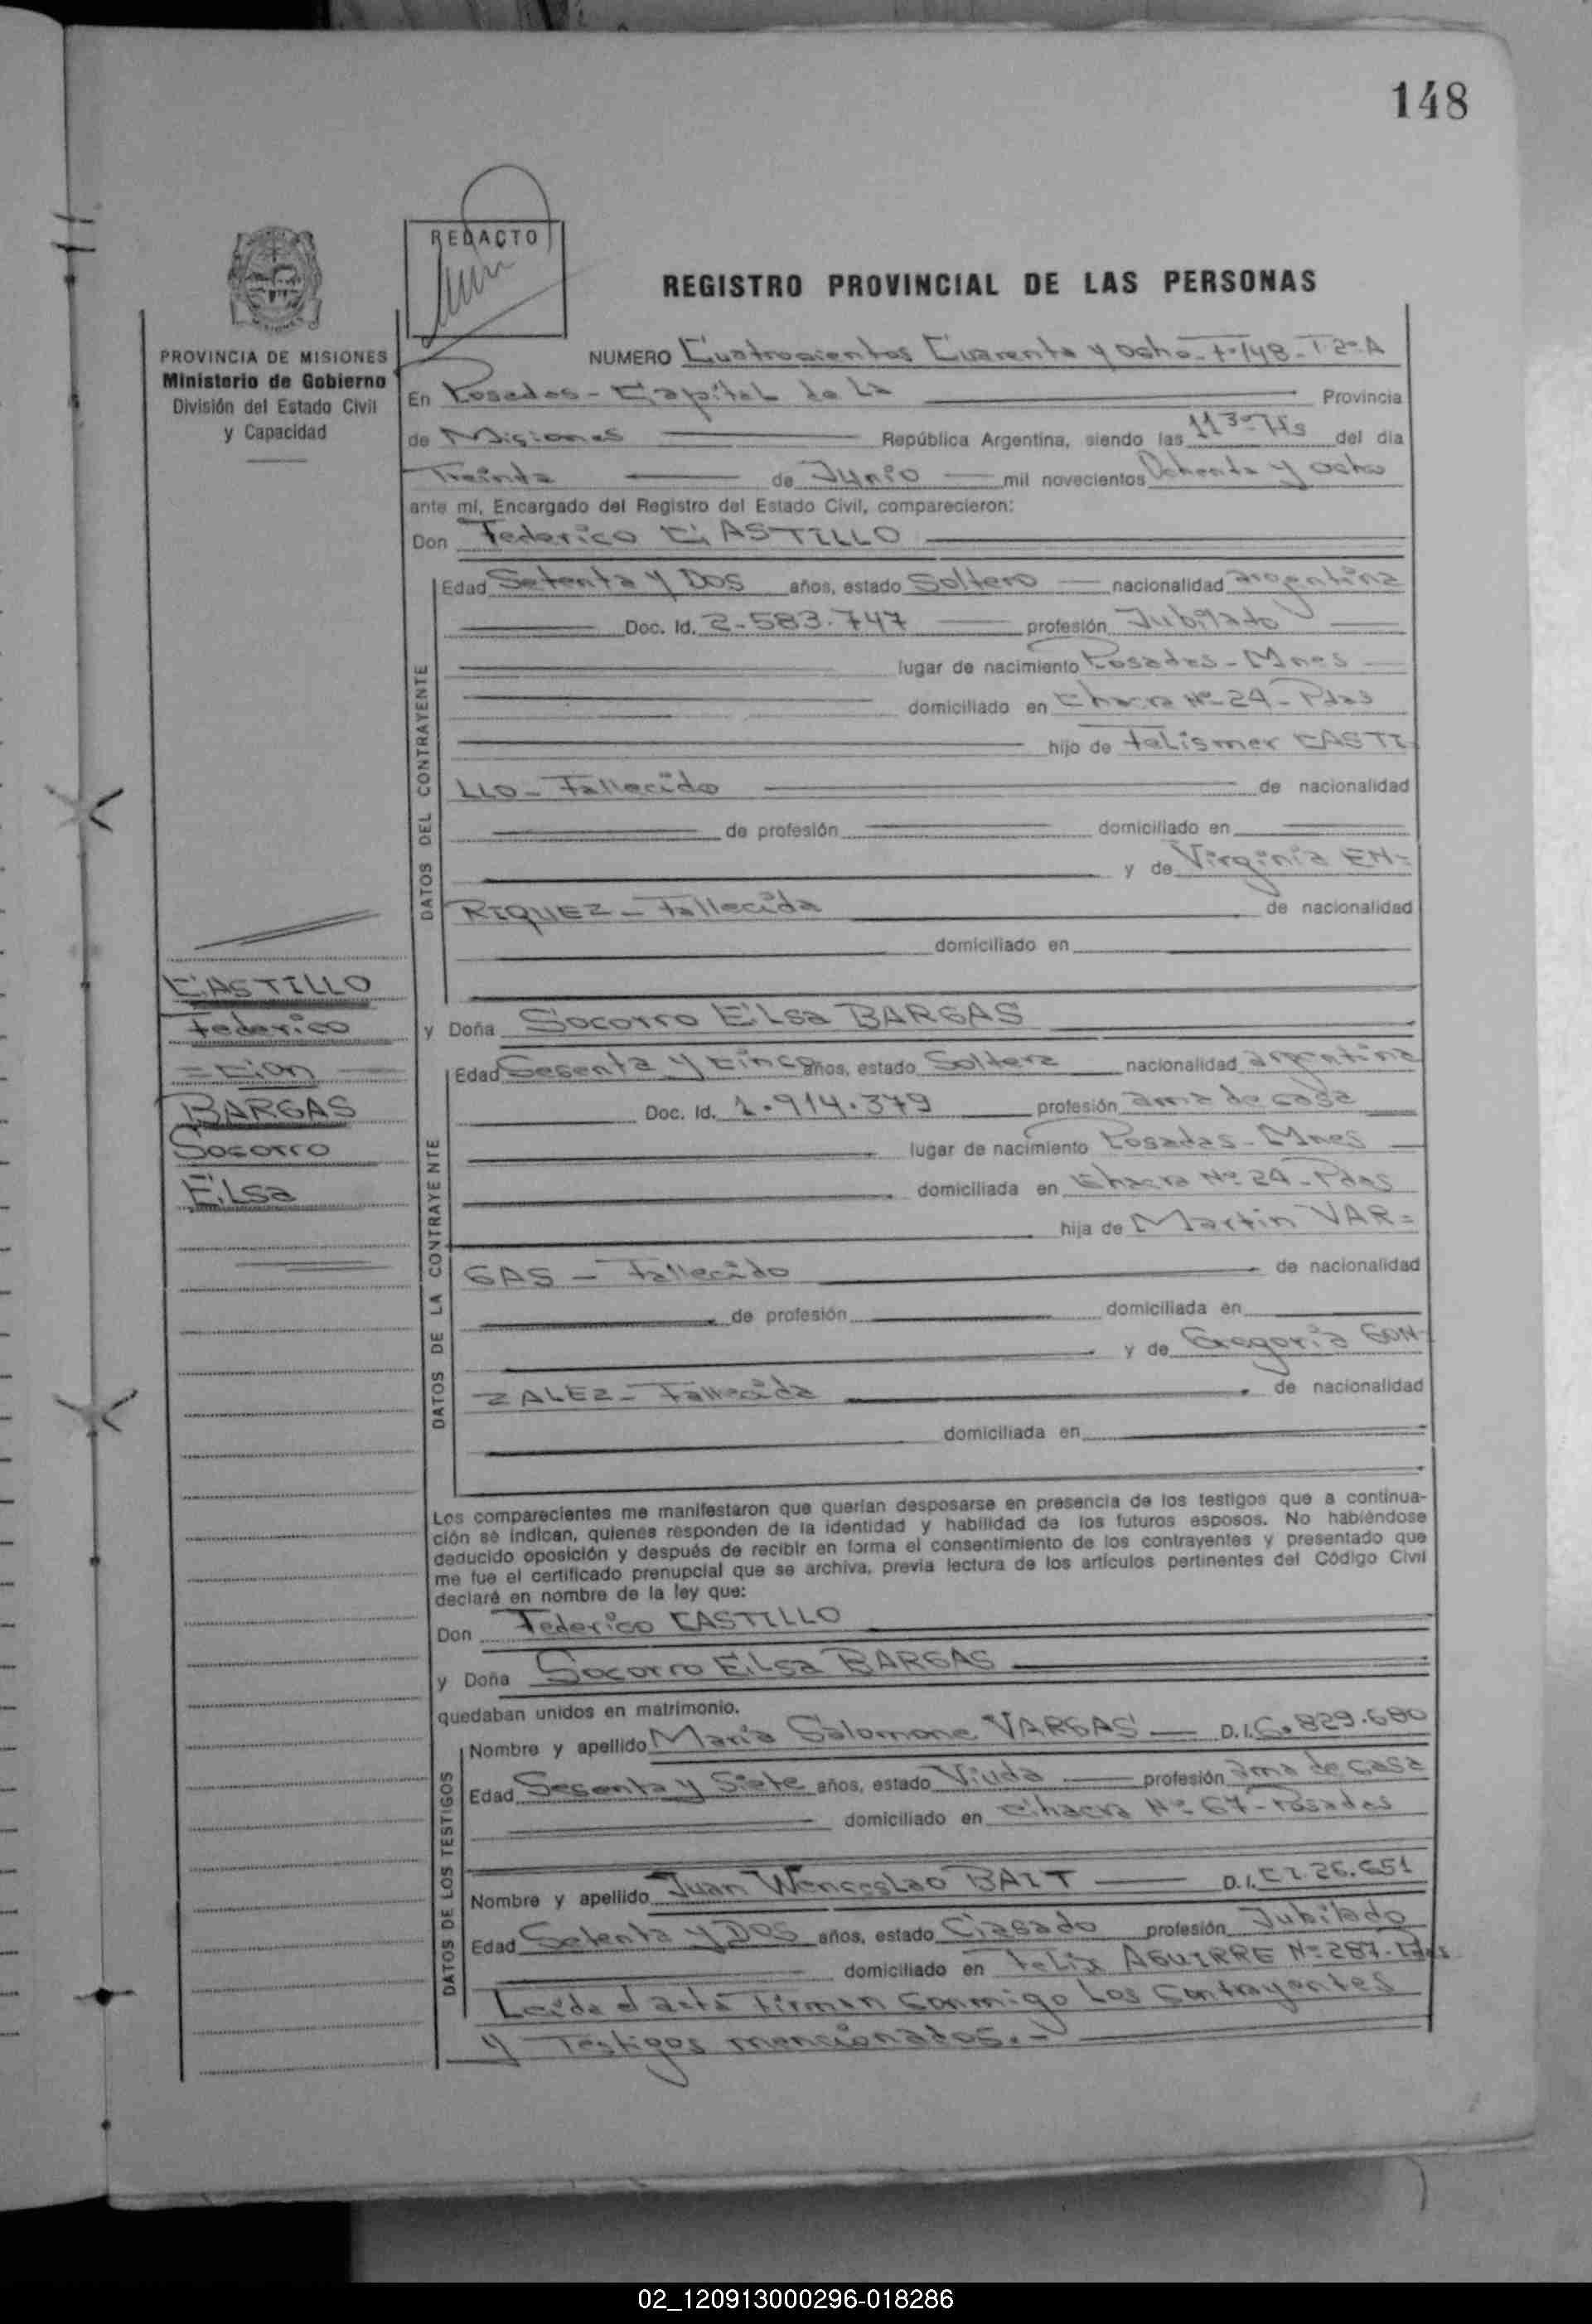 148
REDACTO
REGISTRO PROVINCIAL DE LAS PERSONAS
PROVINCIA DE MISIONES
Ministerio de Gobierno
División del Estado Civil
y Capacidad
NUMERO Cuatrocientos Cuarenta y Ocho - Fº 148 - Tº 2º A
En Posadas - Capital de La Provincia
de Misiones República Argentina, siendo las 11 30 Hs del día
Treinta de Junio mil novecientos Ochenta y Ocho
ante mí, Encargado del Registro del Estado Civil, comparecieron:
Don Federico CASTILLO
DATOS DEL CONTRAYENTE
Edad Setenta y Dos años, estado Soltero nacionalidad argentina
Doc. Id. 2-583.747 profesión Jubilado
lugar de nacimiento Posadas - Mnes
domiciliado en Chacra Nº 24 - Pdas
hijo de Felismer CASTI-
LLO - Fallecido de nacionalidad
de profesión domiciliado en
y de Virginia EN=
RIQUEZ - Fallecida de nacionalidad
domiciliado en
CASTILLO
Federico
= Con
BARGAS
Socorro
Elsa
y Doña Socorro Elsa BARGAS
DATOS DE LA CONTRAYENTE
Edad Sesenta y Cinco años, estado Soltera nacionalidad argentina
Doc. Id. 1.914.379 profesión ama de casa
lugar de nacimiento Posadas - Mnes
domiciliada en Chacra Nº 24 - Pdas
hija de Martin VAR=
GAS - Fallecido de nacionalidad
de profesión domiciliada en
y de Gregoria GON-
ZALEZ - Fallecida de nacionalidad
domiciliada en
Los comparecientes me manifestaron que querían desposarse en presencia de los testigos que a continua-
ción se indican, quienes responden de la identidad y habilidad de los futuros esposos. No habiéndose
deducido oposición y después de recibir en forma el consentimiento de los contrayentes y presentado que
me fue el certificado prenupcial que se archiva, previa lectura de los artículos pertinentes del Código Civil
declaré en nombre de la ley que:
Don Federico CASTILLO
y Doña Socorro Elsa BARGAS
quedaban unidos en matrimonio.
DATOS DE LOS TESTIGOS
Nombre y apellido Maria Salomone VARGAS D.I. 6.829.680
Edad Sesenta y Siete años, estado Viuda profesión ama de casa
domiciliado en Chacra Nº 67 - Posadas
Nombre y apellido Juan Wenceslao BAIT D.I. CI. 26.651
Edad Setenta y Dos años, estado Casado profesión Jubilado
domiciliado en Felix AGUIRRE Nº 287 - Pdas
Leida el acta Firman conmigo Los Contrayentes
y Testigos mencionados.-
02_120913000296-018286